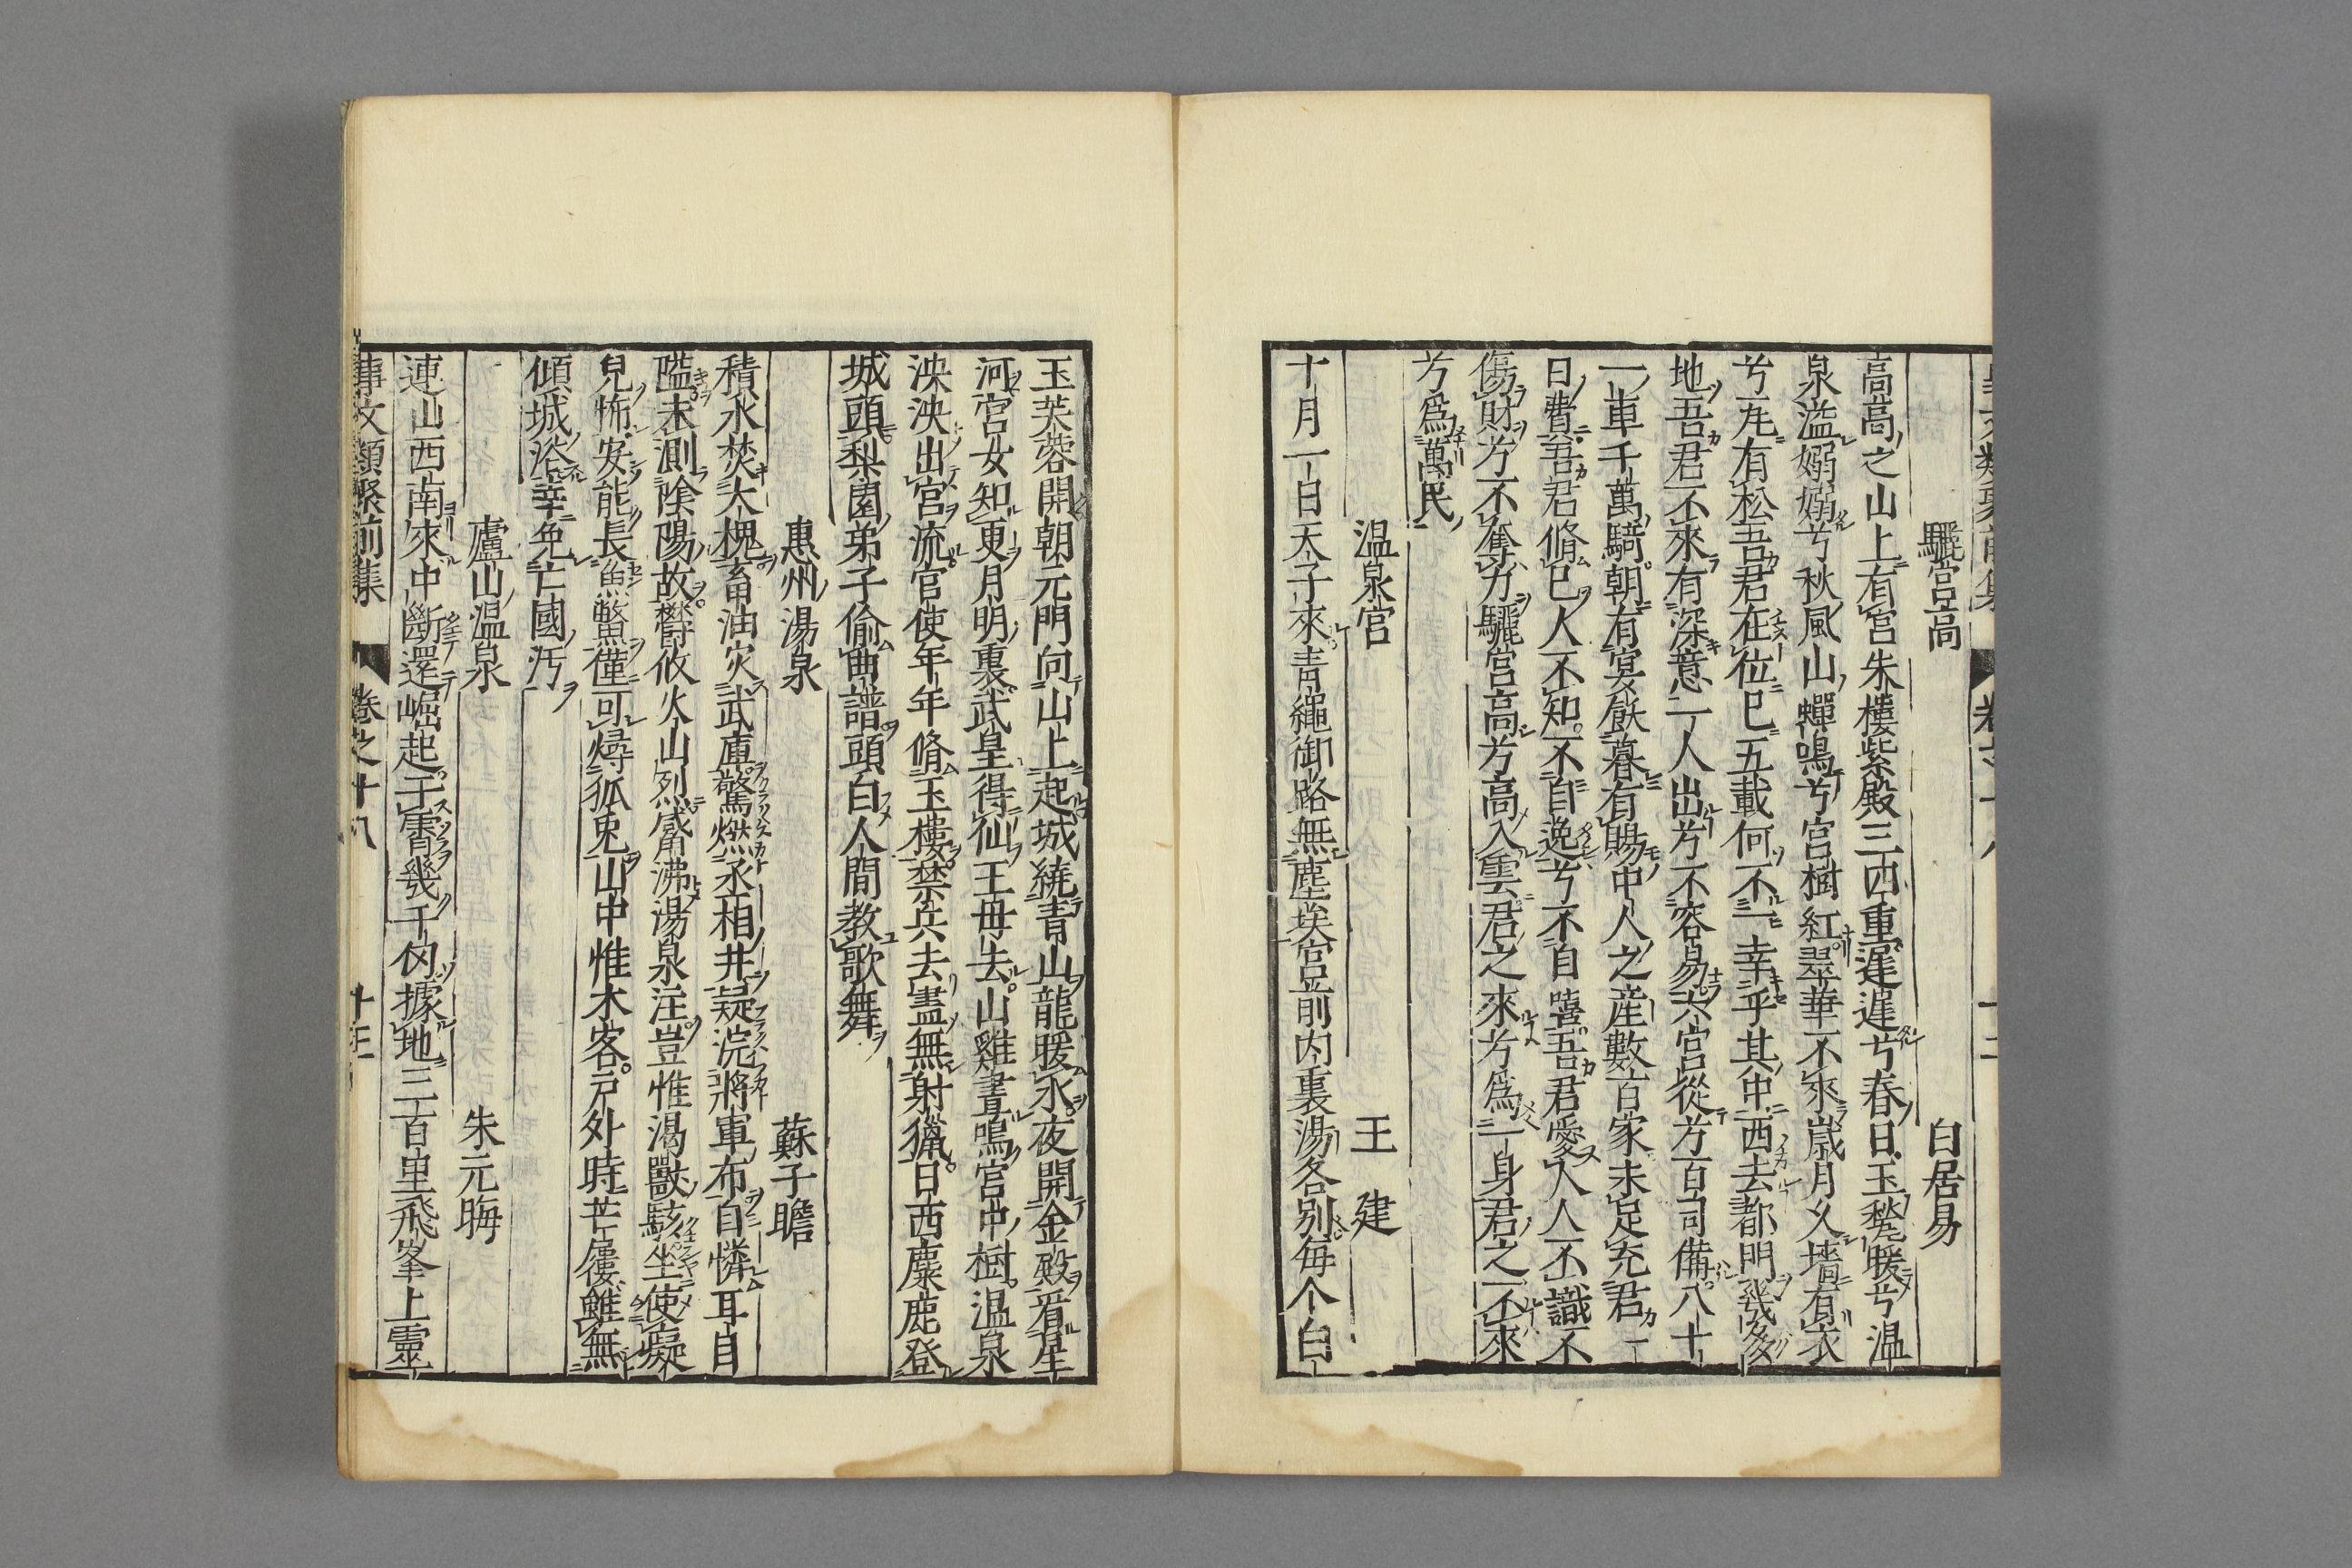 驪宮高 白居易
高高之山上有宮朱樓紫殿三四重遲遲兮春日玉甃暖兮温
泉溢嫋嫋兮秋風山蟬鳴兮宮樹紅翠華不來歲月久墻有衣
兮瓦有松吾君在位已五載何不一幸乎其中西去都門幾多
地吾君不來有深意一人出兮不容易六宮從兮百司備八十
一車千萬騎朝有宴飫暮有賜中人之産數百家未足充君一
日費吾君脩己人不知不自逸兮不自嘻吾君愛人人不識不
傷財兮不奪力驪宮高兮高入雲君之來兮爲一身君之不來
兮爲萬民
温泉宮 王建
十月一日天子來青繩御路無塵埃宮前内裏湯各別每个白
玉芙蓉開朝元門向山上起城繞青山龍暖水夜開金殿看星
河宮女知更月明裏武皇得仙王母去山雞晝鳴宮中樹温泉
泱泱出宮流宮使年年脩玉樓禁兵去盡無射獵日西麋鹿登
城頭梨園弟子偷曲譜頭白人間教歌舞
惠州湯泉 蘇子瞻
積水焚大槐畜油災武庫驚燃丞相井疑浣將軍布自憐耳目
隘未測陰陽故欝攸火山烈觱沸湯泉注豈惟渴獸駭坐使癡
兒怖安能長魚鱉僅可燖狐兎山中惟木客戶外時芒屨雖無
傾城浴幸免亡國汚
廬山温泉 朱元晦
連山西南來中斷還崛起干霄幾千仞據地三百里飛峯上靈
事文類聚前集 卷之十八 十三